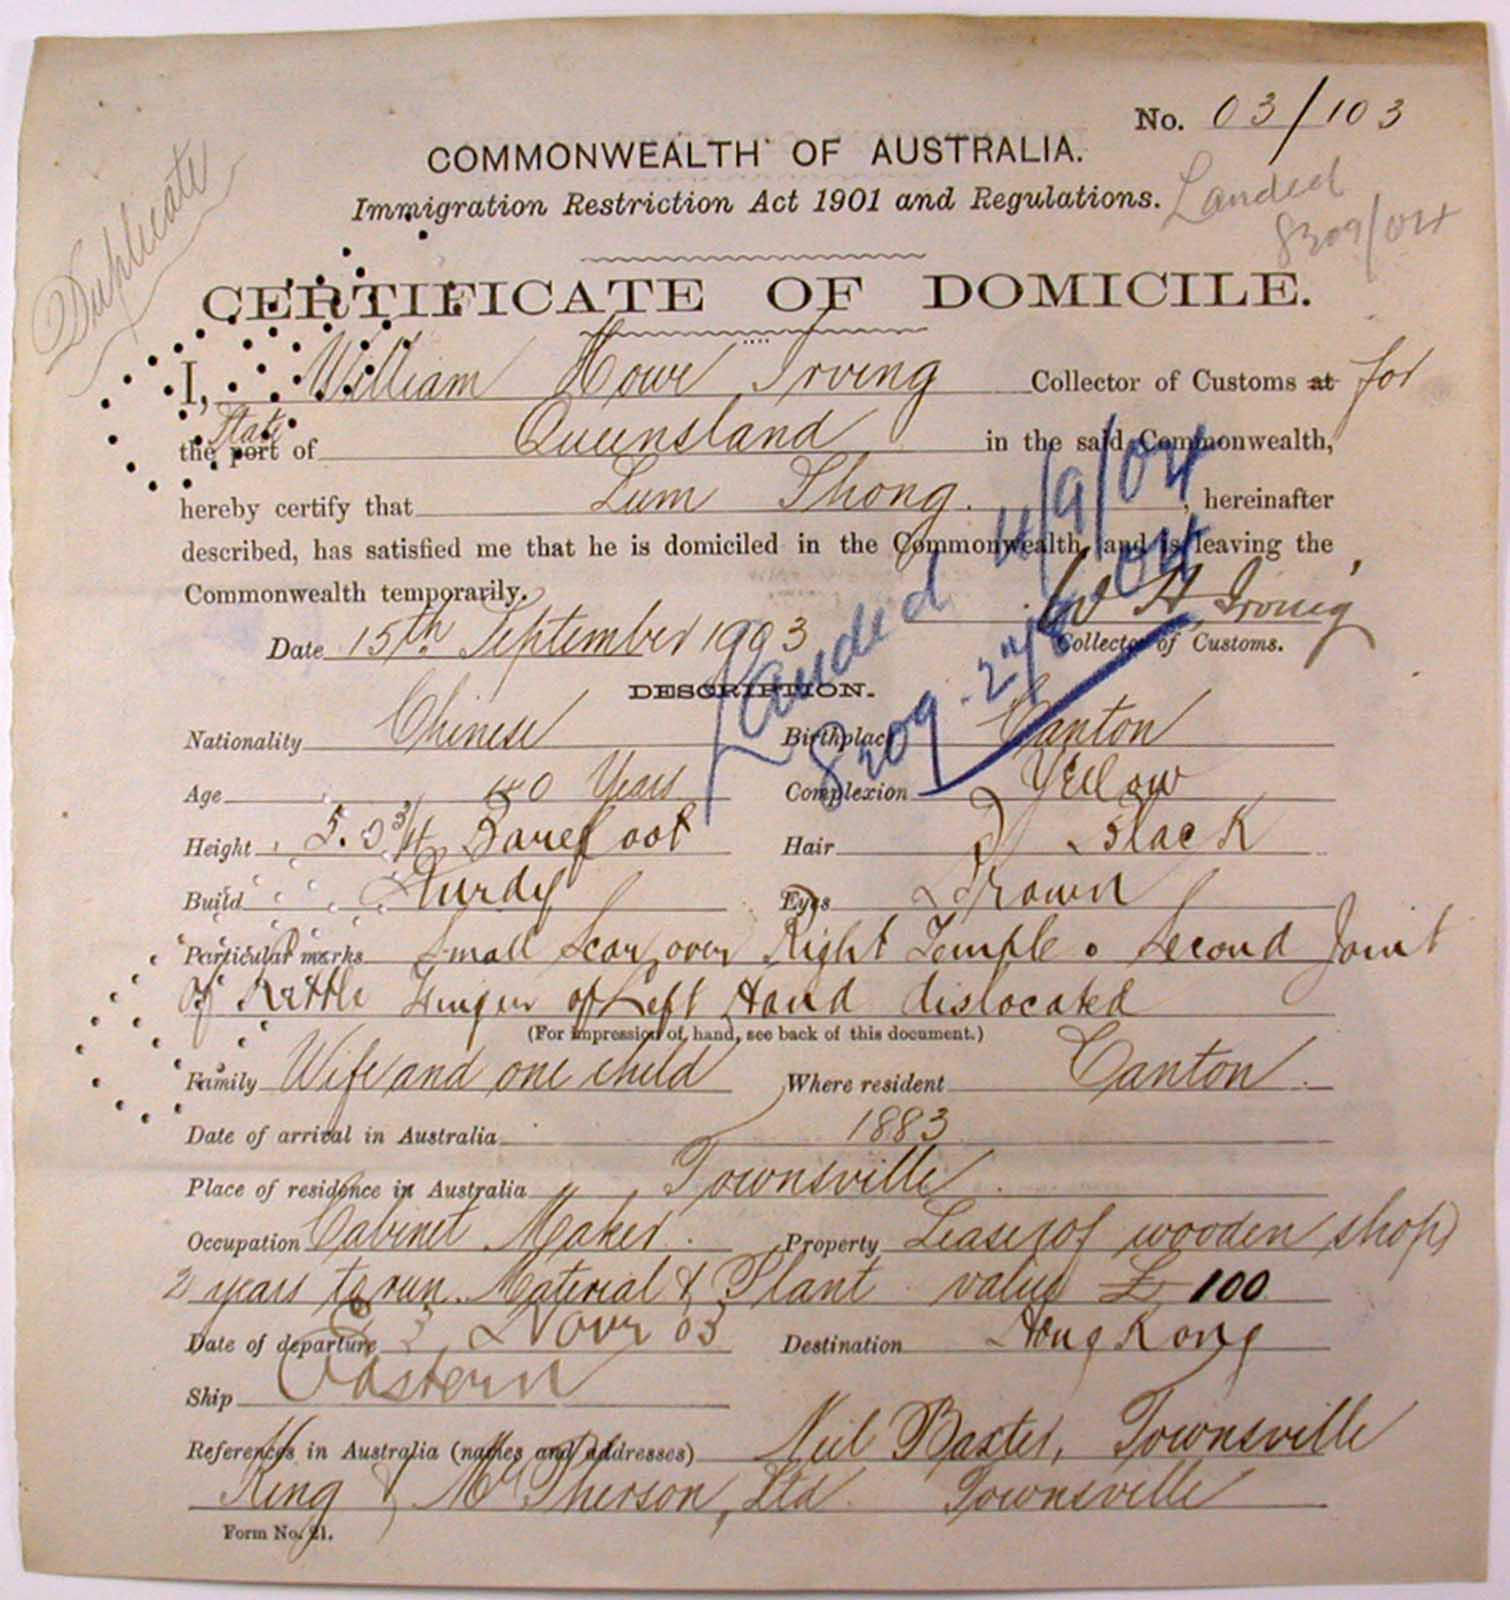 No. 03/103
COMMONWEALTH OF AUSTRALIA.
Immigration Restriction Act 1901 and Regulations.
Landed
8209/04
Duplicate
CERTIFICATE OF DOMICILE.
I, William Howe Irving Collector of Customs at for
the port State of Queensland in the said Commonwealth,
hereby certify that Lum Thong. , hereinafter
described, has satisfied me that he is domiciled in the Commonwealth, and is leaving the
Commonwealth temporarily.
W H Irving
Date 15th September 1903 Collector of Customs.
Landed 4/9/04
8209
DESCRIPTION.
Nationality Chinese Birthplace Canton
Age 40 Years Complexion Yellow
Height 5. 3/4 Barefoot Hair Black
Build Sturdy Eyes Brown
Particular marks Small Scar over Right Temple. Second Joint
of Little Finger of Left Hand dislocated
(For impression of hand, see back of this document.)
Family Wife and one child Where resident Canton.
Date of arrival in Australia 1883
Place of residence in Australia Townsville.
Occupation Cabinet Maker. Property Lease of wooden shop
2 years to run. Material & Plant value £100
Date of departure 3 Novr 03 Destination Hong Kong
Ship Eastern
References in Australia (names and addresses) Neil Baxter, Townsville
King & McPherson, Ltd. Townsville
Form No. 21.